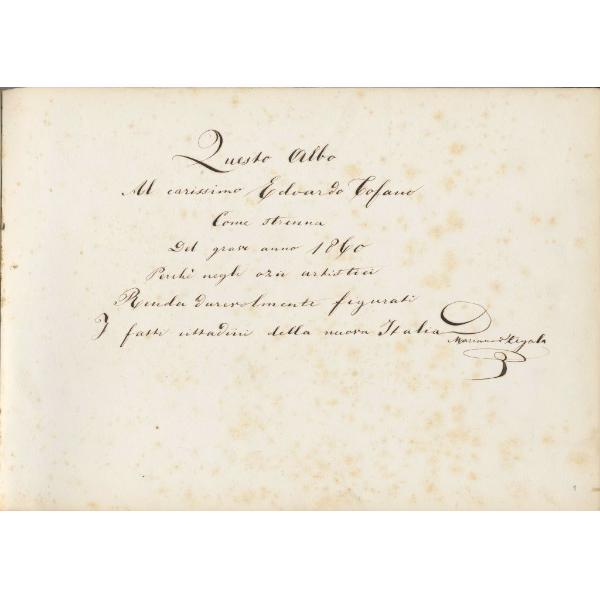 Questo Albo
Al carissimo Edoardo Tofano
Come strenna
Del grave anno 1860
Perchè negli ozii artistici
Renda durevolmente figurati
I fatti cittadini della nuova Italia
Mariano